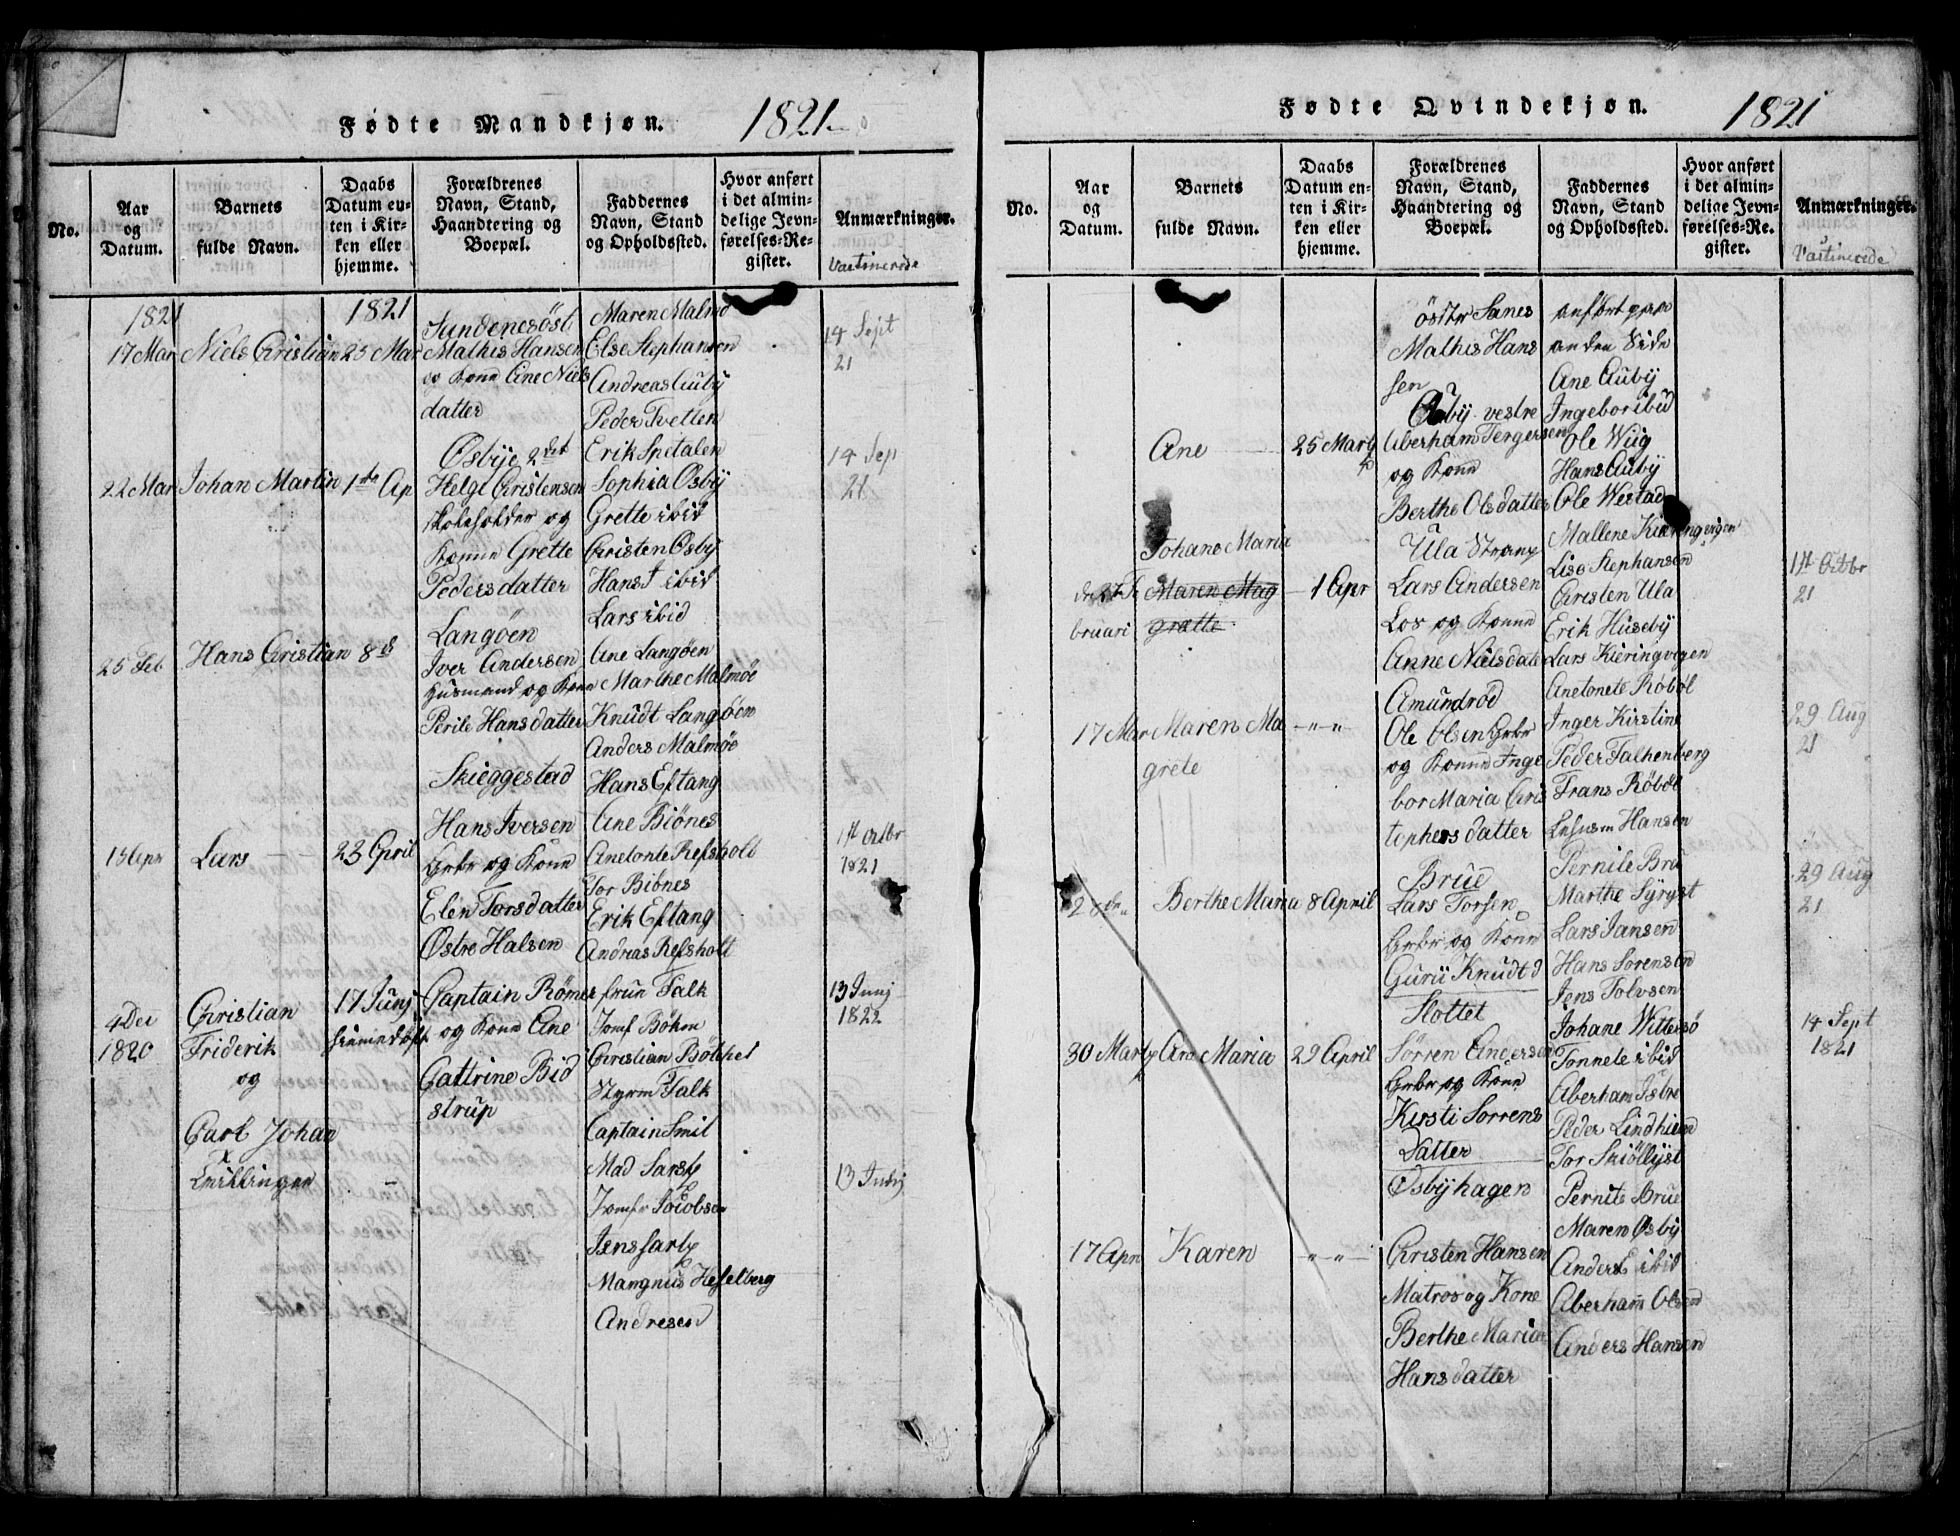 Fødte Mandkjøn. 1821
No.
Aar og Datum.
Barnets fulde Navn.
Daabs Datum enten i Kirken eller hjemme.
Forældrenes Navn, Stand, Haandtering og Boepæl.
Faddernes Navn, Stand og Opholdssted.
Hvor anført i det almindelige Jevnførelses-Register.
Anmærkninger.
Vactinerede
1821
17 Mar
Niels Christian
1821
25 Mar
Sundenes øst
Mathis Hansen
og Kone Ane Niels
datter
Maren Malmö
Else Stephansen
Andreas Auby
Peder Tvetten
14 Sept
21
22 Mar
Johan Martin
1ste Ap
Østbye
Helge Christensen
skoleholder og
Konne Grette
Peders datter
Erik Spetalen
Sophia Østby
Grette ibid
Christen Østby
Hans ibid
Lars ibid
14 Sep
21
25 Feb
Hans Christian
8 d
Langöen
Iver Andersen
Husmand og Kone
Perile Hansdatter
Ane Langöen
Marthe Malmöe
Knudt Langöen
Anders Malmöe
15 Apr
Lars
23 April
Skieggestad
Hans Iversen
Grbr og Kone
Elen Torsdatter
Østre Halsen
Hans Eftang
Ane Biönes
Anetonte Refsholt
Tor Biönes
Erik Eftang
Andreas Refsholt
1st Octbr
1821
4 Dec
1820
Christian
Friderik
og
Carl Johan
x
Tvillinger
17 Junj
hiemmedøbt
Captain Römer
og Kone Ane
Cattrine Bid
strup
frue Falk
Jomf Böhm
Christian Böttcher
Styrm Falk
Captain Smit
Mad Sartz
Jomfr Jacobsen
Jens Sartz
Mangnus Heselberg
Andresen
13 Junj
1822
13 Julij
Fødte Qvindekjøn. 1821
No.
Aar og Datum.
Barnets fulde Navn.
Daabs Datum enten i Kirken eller hjemme.
Forældrenes Navn, Stand, Haandtering og Boepæl.
Faddernes Navn, Stand og Opholdssted.
Hvor anført i det almindelige Jevnførelses-Register.
Anmærkninger.
Vactinerede
Mathis Hans
sen
anført paa
anden Side
Ane
25 Martz
Østby vestre
Aberham Tergersen
og Kone
Berthe Olsdatter
Ane Auby
Ingebor ibid
Ole Wiig
Hans Auby
Ole Westad
bruari
Johane Maria
Maren Mag
grette
1 Apr
Ula Strang
Lars Andersen
Los og Kone
Anne Nielsdatter
Mallene Kieringvigen
Lise Stephansen
Christen Ula
Erik Huseby
Lars Kieringvigen
1st Octbr
21
17 Mar
Maren Ma
grete
Amundröd
Ole Olsen Grbr
og Konne Inge
bor Maria Chris
tophersdatter
Anetonete Röböl
Inger Kirstine
Peder Falkenberg
Frans Röböl
Hansen
29 Aug
21
Berthe Maria
8 April
Brue
Lars Torsen
Grbr og Kone
Gurii Knudt d
Pernile Brue
Marthe Syryst
Lars Jansen
Hans Sorensen
Jens Tolvsen
29 Aug
21
30 Martz
Ane Maria
29 April
Slottet
Sørren Andersen
Grbr og Kone
Kirsti Sorrens
Datter
Johane Wittersö
Tonnete ibid
Aberham Istre
Peder Lindhiem
Tor Skiöllyst
14 Sept
1821
17 Apr
Karen
Østbyhagen
Christen Hansen
Matros og Kone
Berthe Maria
Hans datter
Pernile Brue
Maren Østby
Anders ibid
Aberham Olsen
Anders Hansen